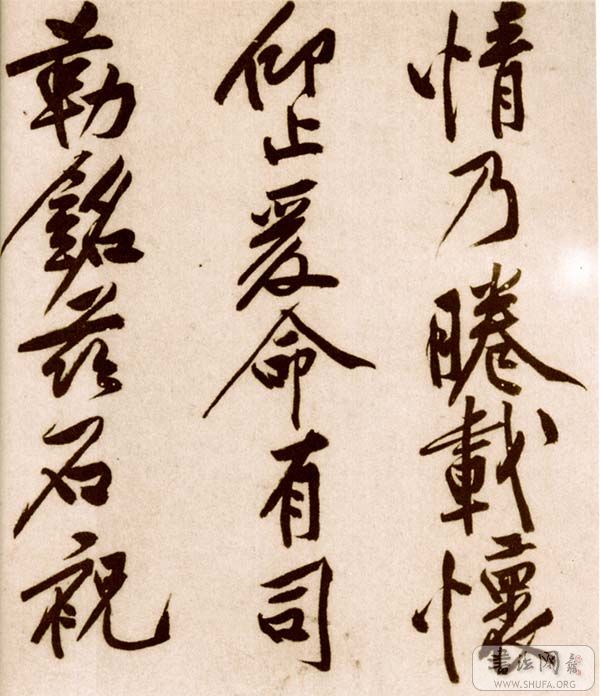 情乃睠載懷
仰止爰命有司
勒銘茲石視
書法网
WWW.SHUFA.ORG